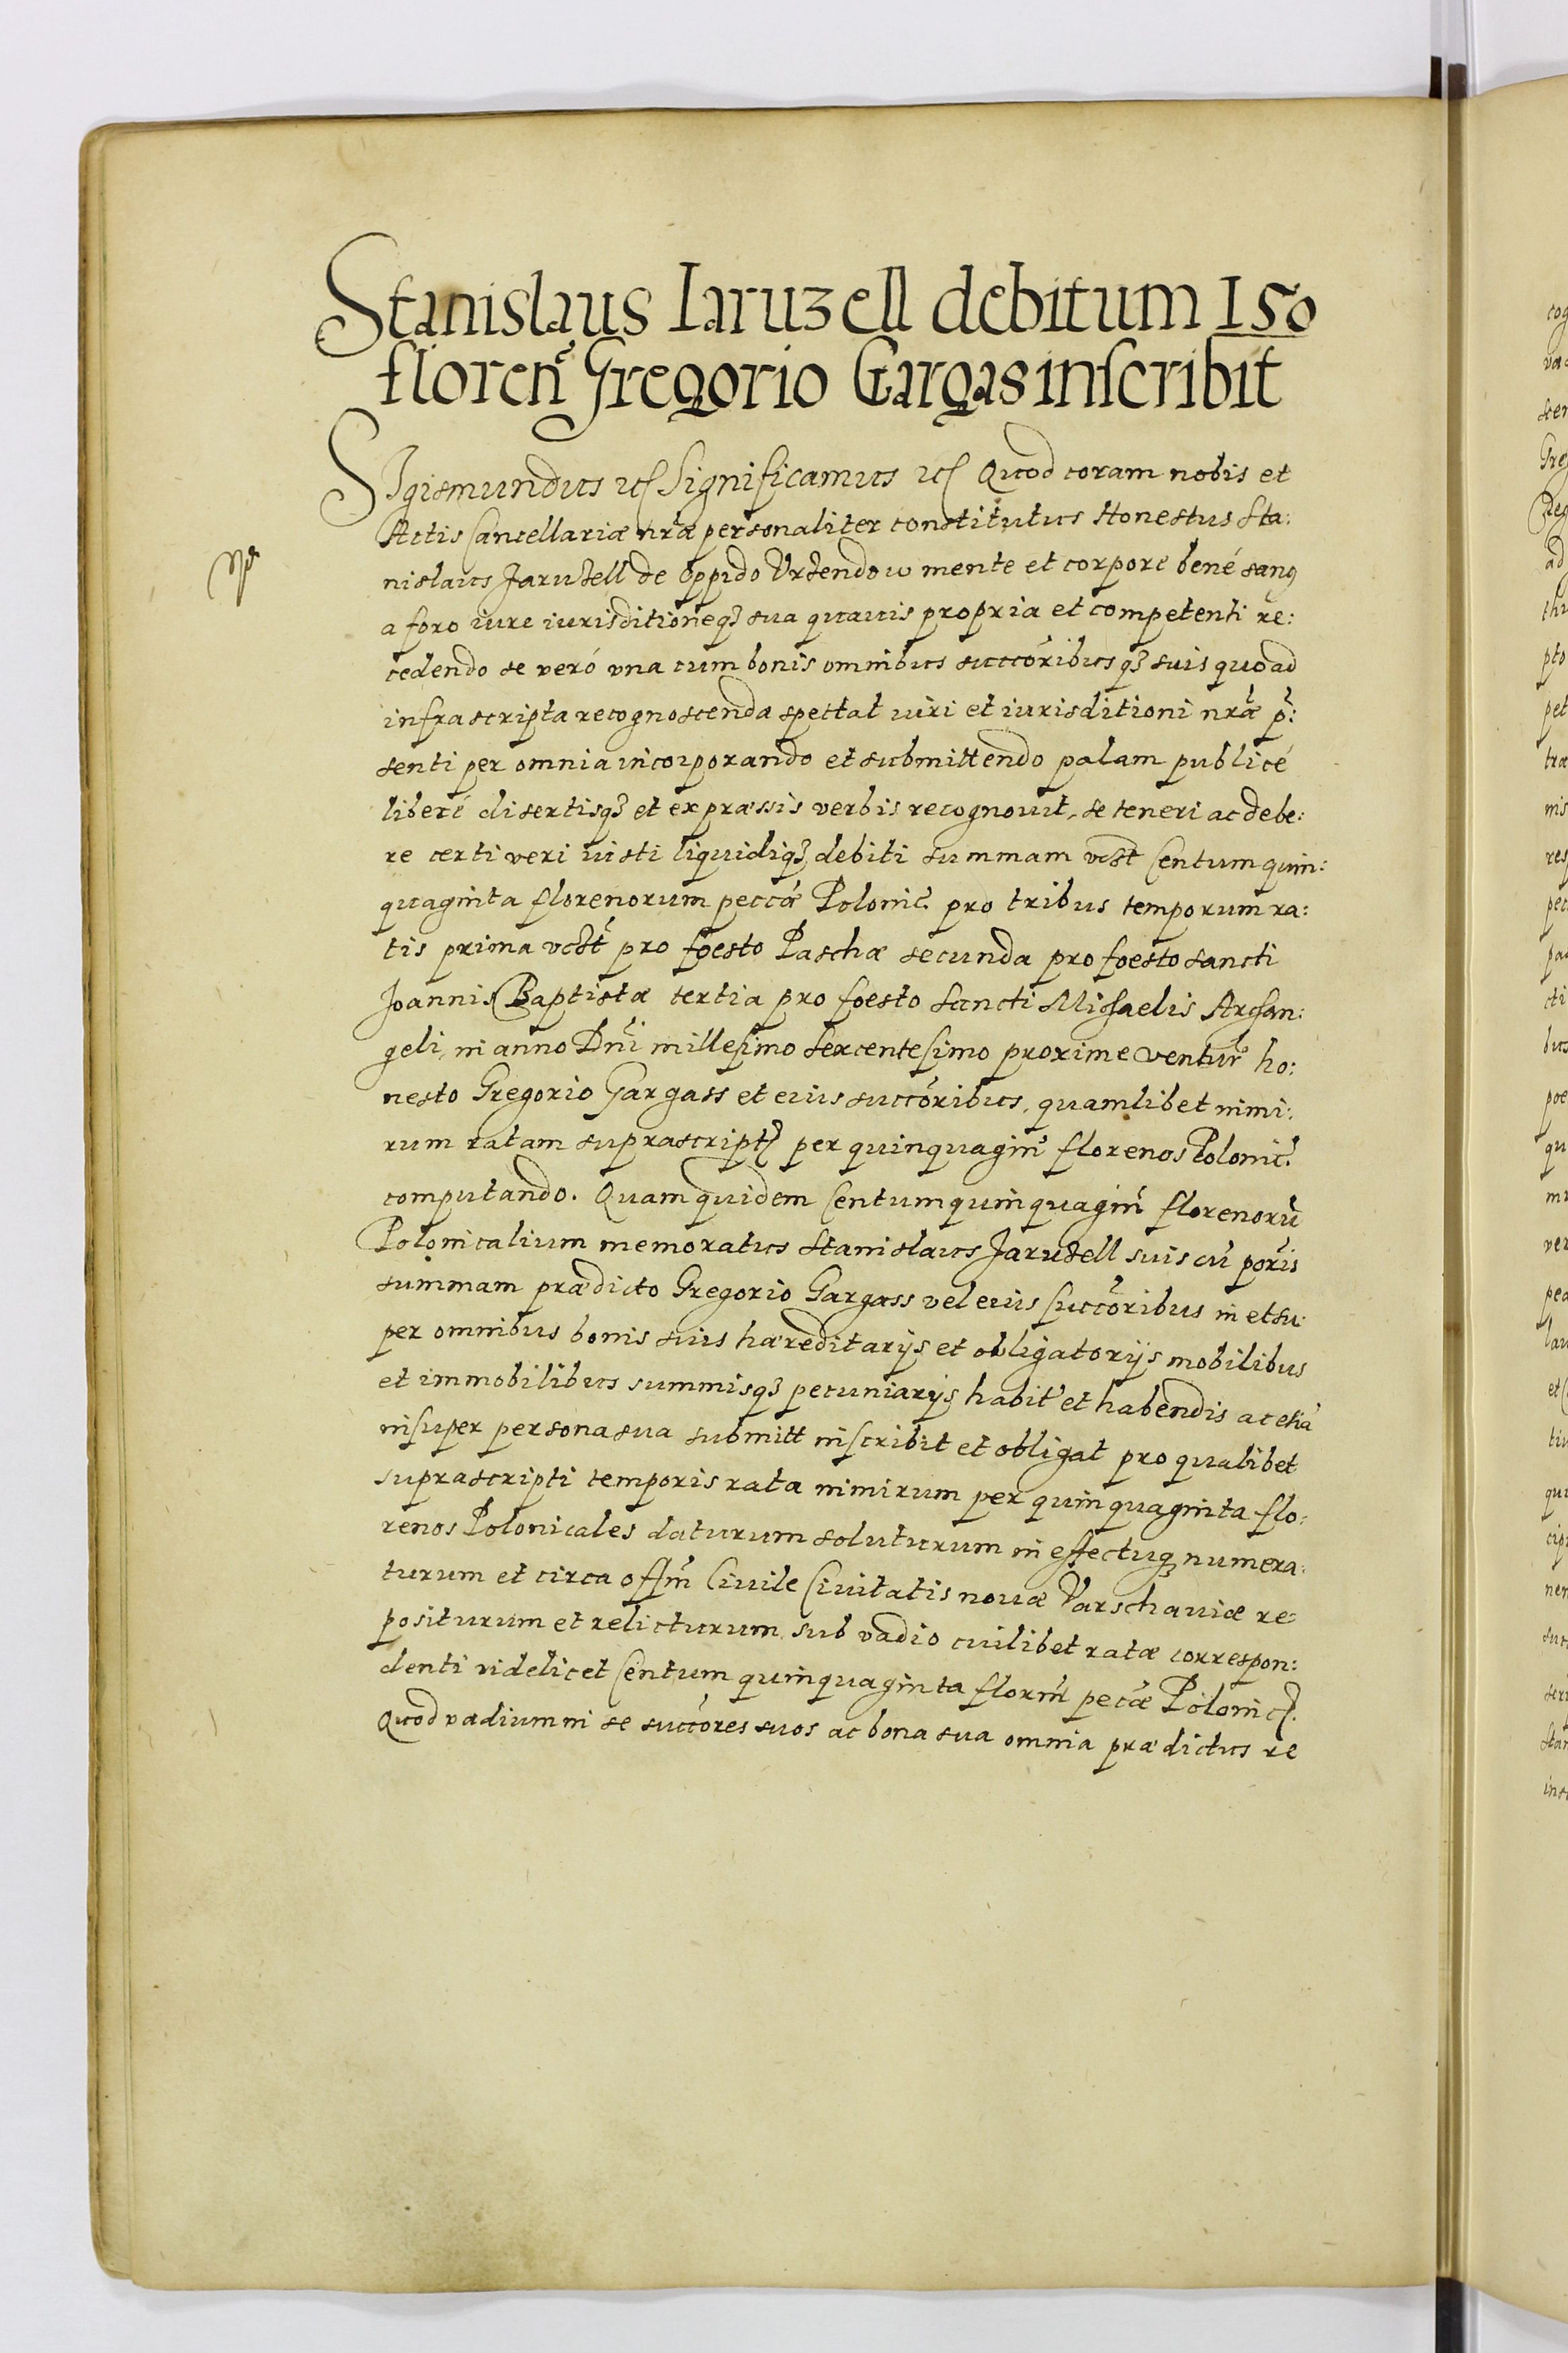 Stanislaus Iaruzell debitum 150
floren̄ Gregorio Gargas inscribit
Sigismundus etc Significamus etc Quod coram nobis et
Actis Cancellariæ nr̄æ personaliter constitutus Honestus Sta:
nislaus Jaruzell de Oppido Vrzendow mente et corpore bené sanus
a foro iure iurisditioneq3 sua quauis propria et competenti re:
cedendo se veró vna cum bonis omnibus succōribusq3 suis quoad
infrascripta recognoscenda spectat iuri et iurisditioni nr̄æ p̄:
senti per omnia incorporando et submittendo palam publicé
liberé disertisq3 et expræssis verbis recognouit, se teneri ac debe:
re certi veri iusti liquidiq3 debiti summam vczt Centum quin:
quaginta florenorum peccæ Polonic̄. pro tribus temporum ra:
tis prima vczt pro foesto Paschæ secunda pro foesto sancti
Joannis Baptistæ tertia pro foesto Sancti Michaelis Archan:
geli, in anno Dn̄i millesimo Sexcentesimo proxime ventur̄ ho:
nesto Gregorio Gargass et eius succōribus, quamlibet nimi:
rum ratam suprascript per quinquagin̄ florenos Polonic̄.
computando. Quam quidem Centum quinquagin̄ florenorū
Polonicalium memoratus Stanislaus Jaruzell suis cū pōris
summam prædicto Gregorio Gargass vel eius succōribus in et su:
per omnibus bonis suis hæreditarijs et obligatorijs mobilibus
et immobilibus summisq3 pecuniarijs habit̄ et habendis ac etiā
insuper persona sua submitt inscribit et obligat pro qualibet
suprascripti temporis rata nimirum per quinquaginta flo:
renos Polonicales daturum soluturum in effectuq3 numera:
turum et circa offm̄ Ciuile Ciuitatis nouæ Varschauiæ re:
positurum et relicturum, sub vadio cuilibet ratæ correspon:
denti videlicet Centum quinquaginta florn̄ pecc̄æ Polonic.
Quod vadium in se succōres suos ac bona sua omnia prædictus re